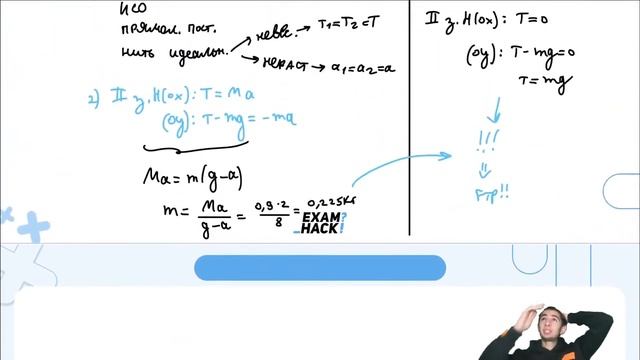 ИСО
прямол. пост.
нить идеальн. → невес. → T₁=T₂=T
→ нераст → a₁=a₂=a
2) II з.Н(ox): T=Ma
(oy): T-mg=-ma
Ma=m(g-a)
m= Ma/g-a = 0,9·2/8 = 0,225кг
EXAM?
_HACK!
II з.Н(ox): T=0
(oy): T-mg=0
T=mg
!!!
Fтр!!